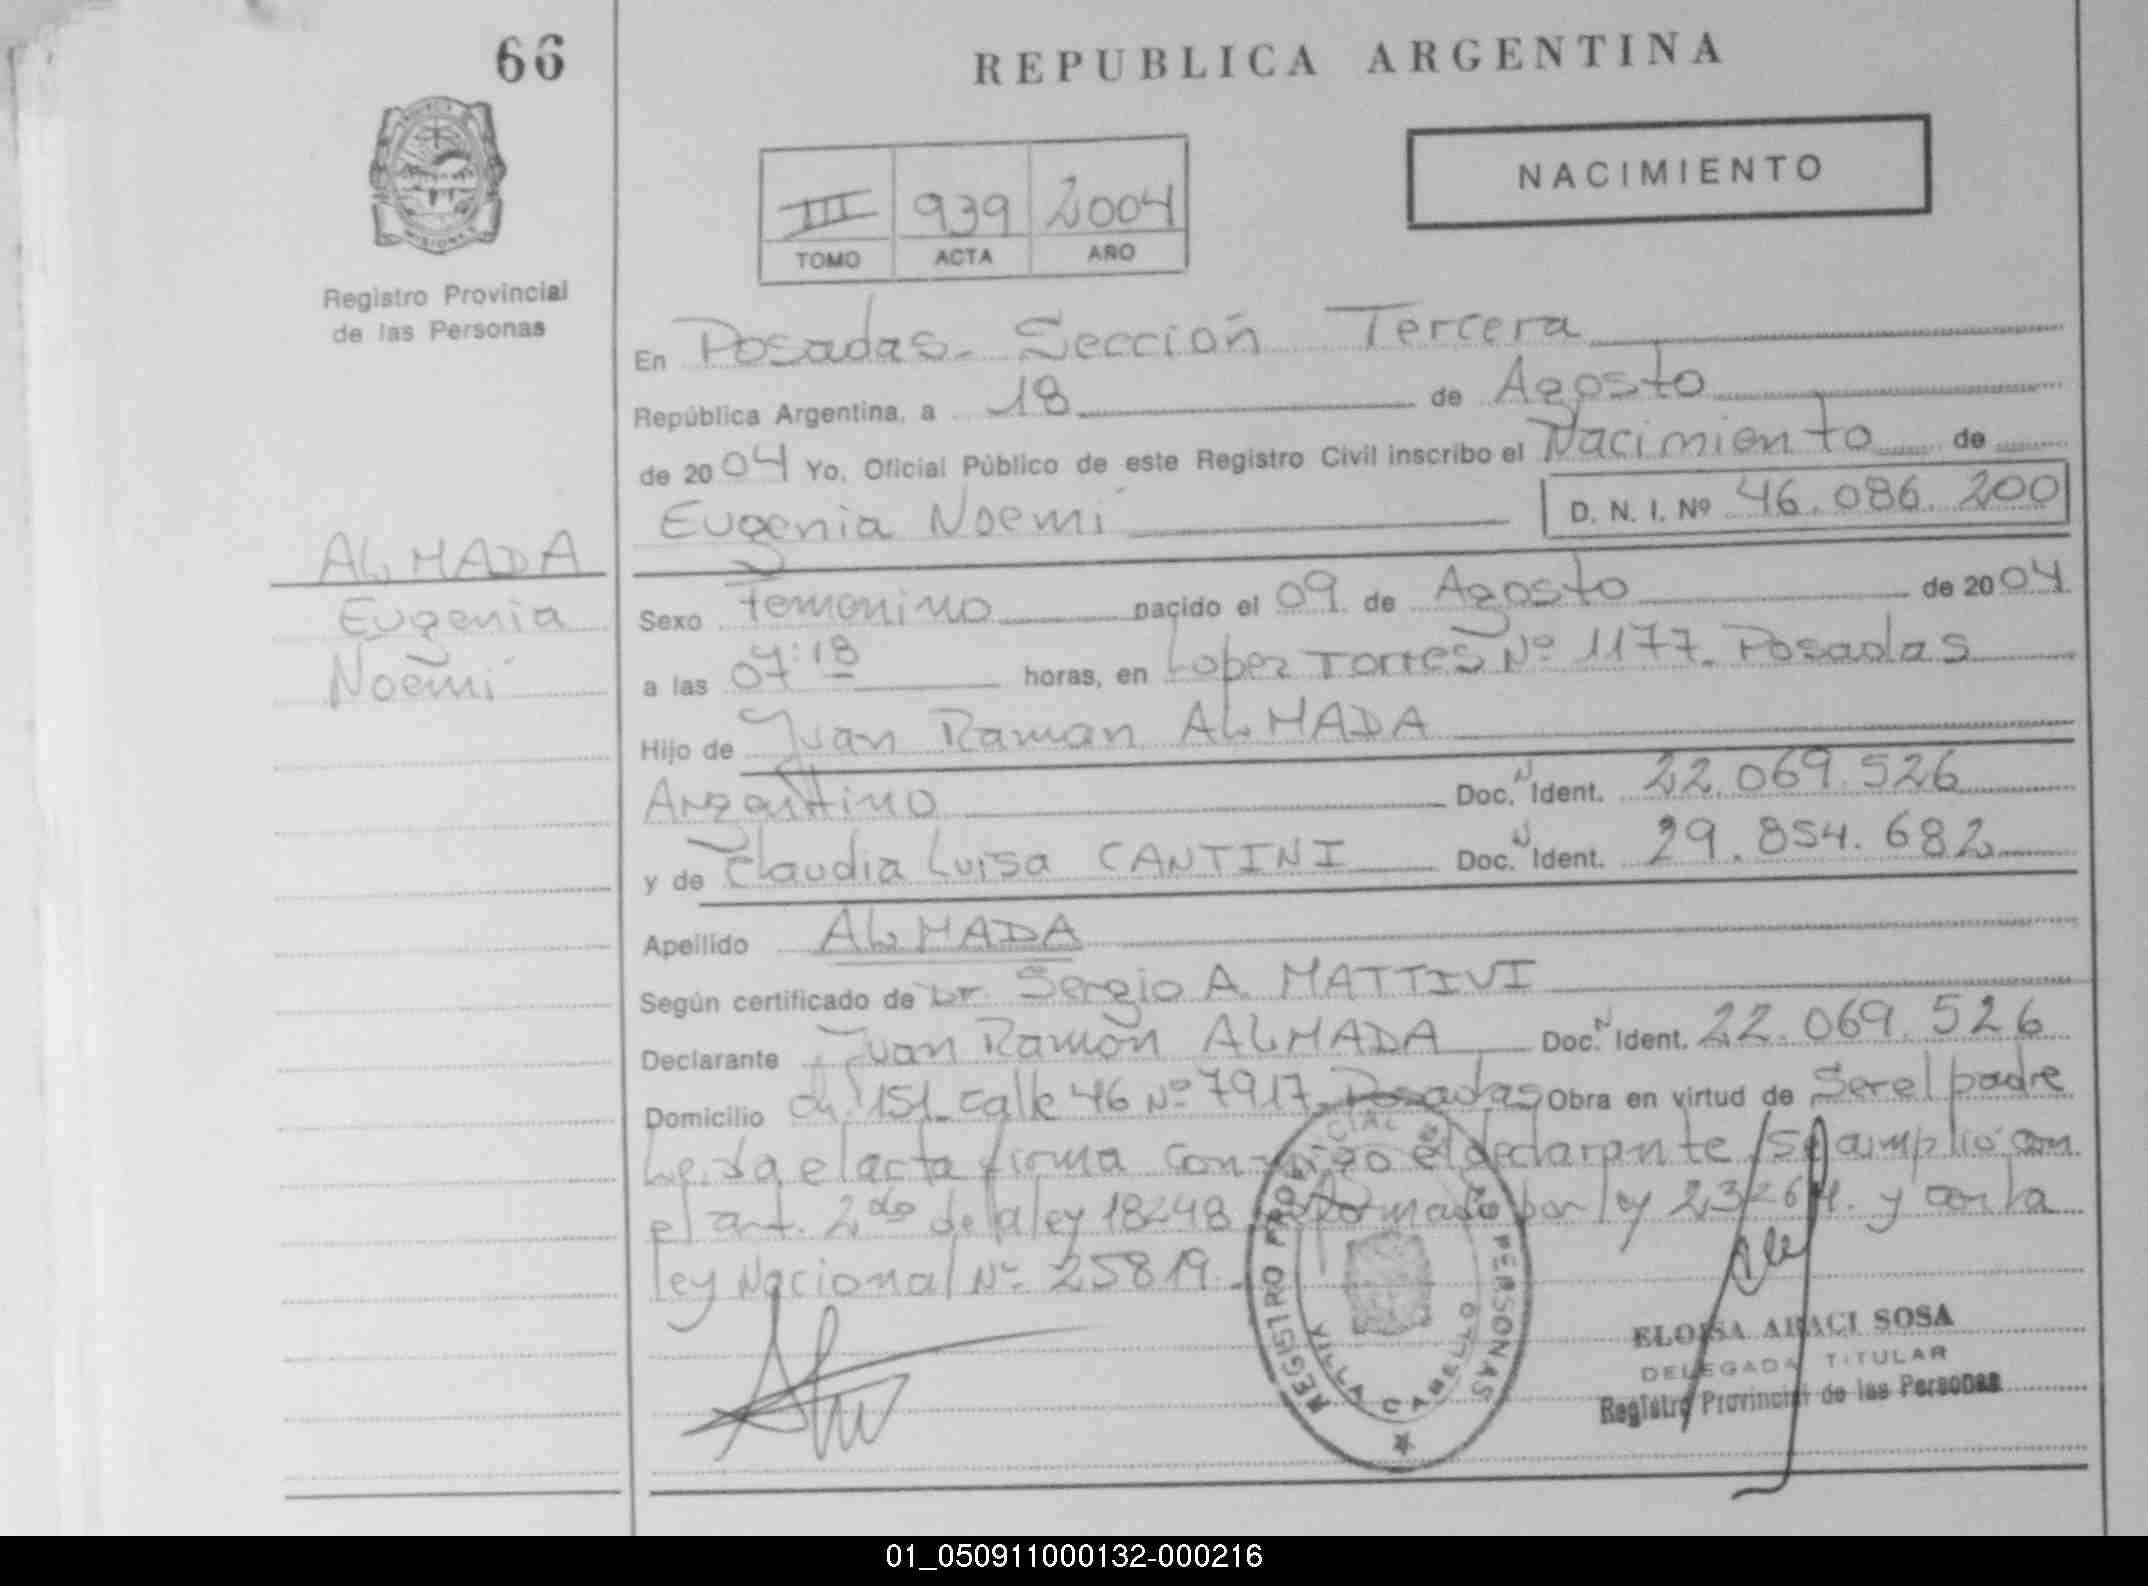 66
REPUBLICA ARGENTINA
NACIMIENTO
III 939 2004
TOMO ACTA AÑO
MISIONES
Registro Provincial
de las Personas
En Posadas - Sección Tercera
República Argentina, a 18 de Agosto
de 2004 Yo, Oficial Público de este Registro Civil inscribo el Nacimiento de
Eugenia Noemí D. N. I. Nº 46.086.200
ALMADA
Eugenia
Noemí
Sexo Femenino nacido el 09 de Agosto de 2004
a las 07:18 horas, en Lopez Torres Nº 1177. Posadas
Hijo de Juan Ramon ALMADA
Argentino Doc. N Ident. 22.069.526
y de Claudia Luisa CANTINI Doc. N Ident. 29.854.682
Apellido ALMADA
Según certificado de Dr. Sergio A. MATTIVI
Declarante Juan Ramón ALMADA Doc. N Ident. 22.069.526
Domicilio Ch. 151 Calle 46 Nº 7917 Posadas Obra en virtud de Ser el padre
Leída el acta firma conmigo el declarante / se amplió con
el art. 2do de la ley 18248 reformado por ley 23264. y con la
ley Nacional Nº 25819.
REGISTRO PROVINCIAL DE LAS PERSONAS
VILLA CABELLO
ELOISA ARACI SOSA
DELEGADA TITULAR
Registro Provincial de las Personas
01_050911000132-000216